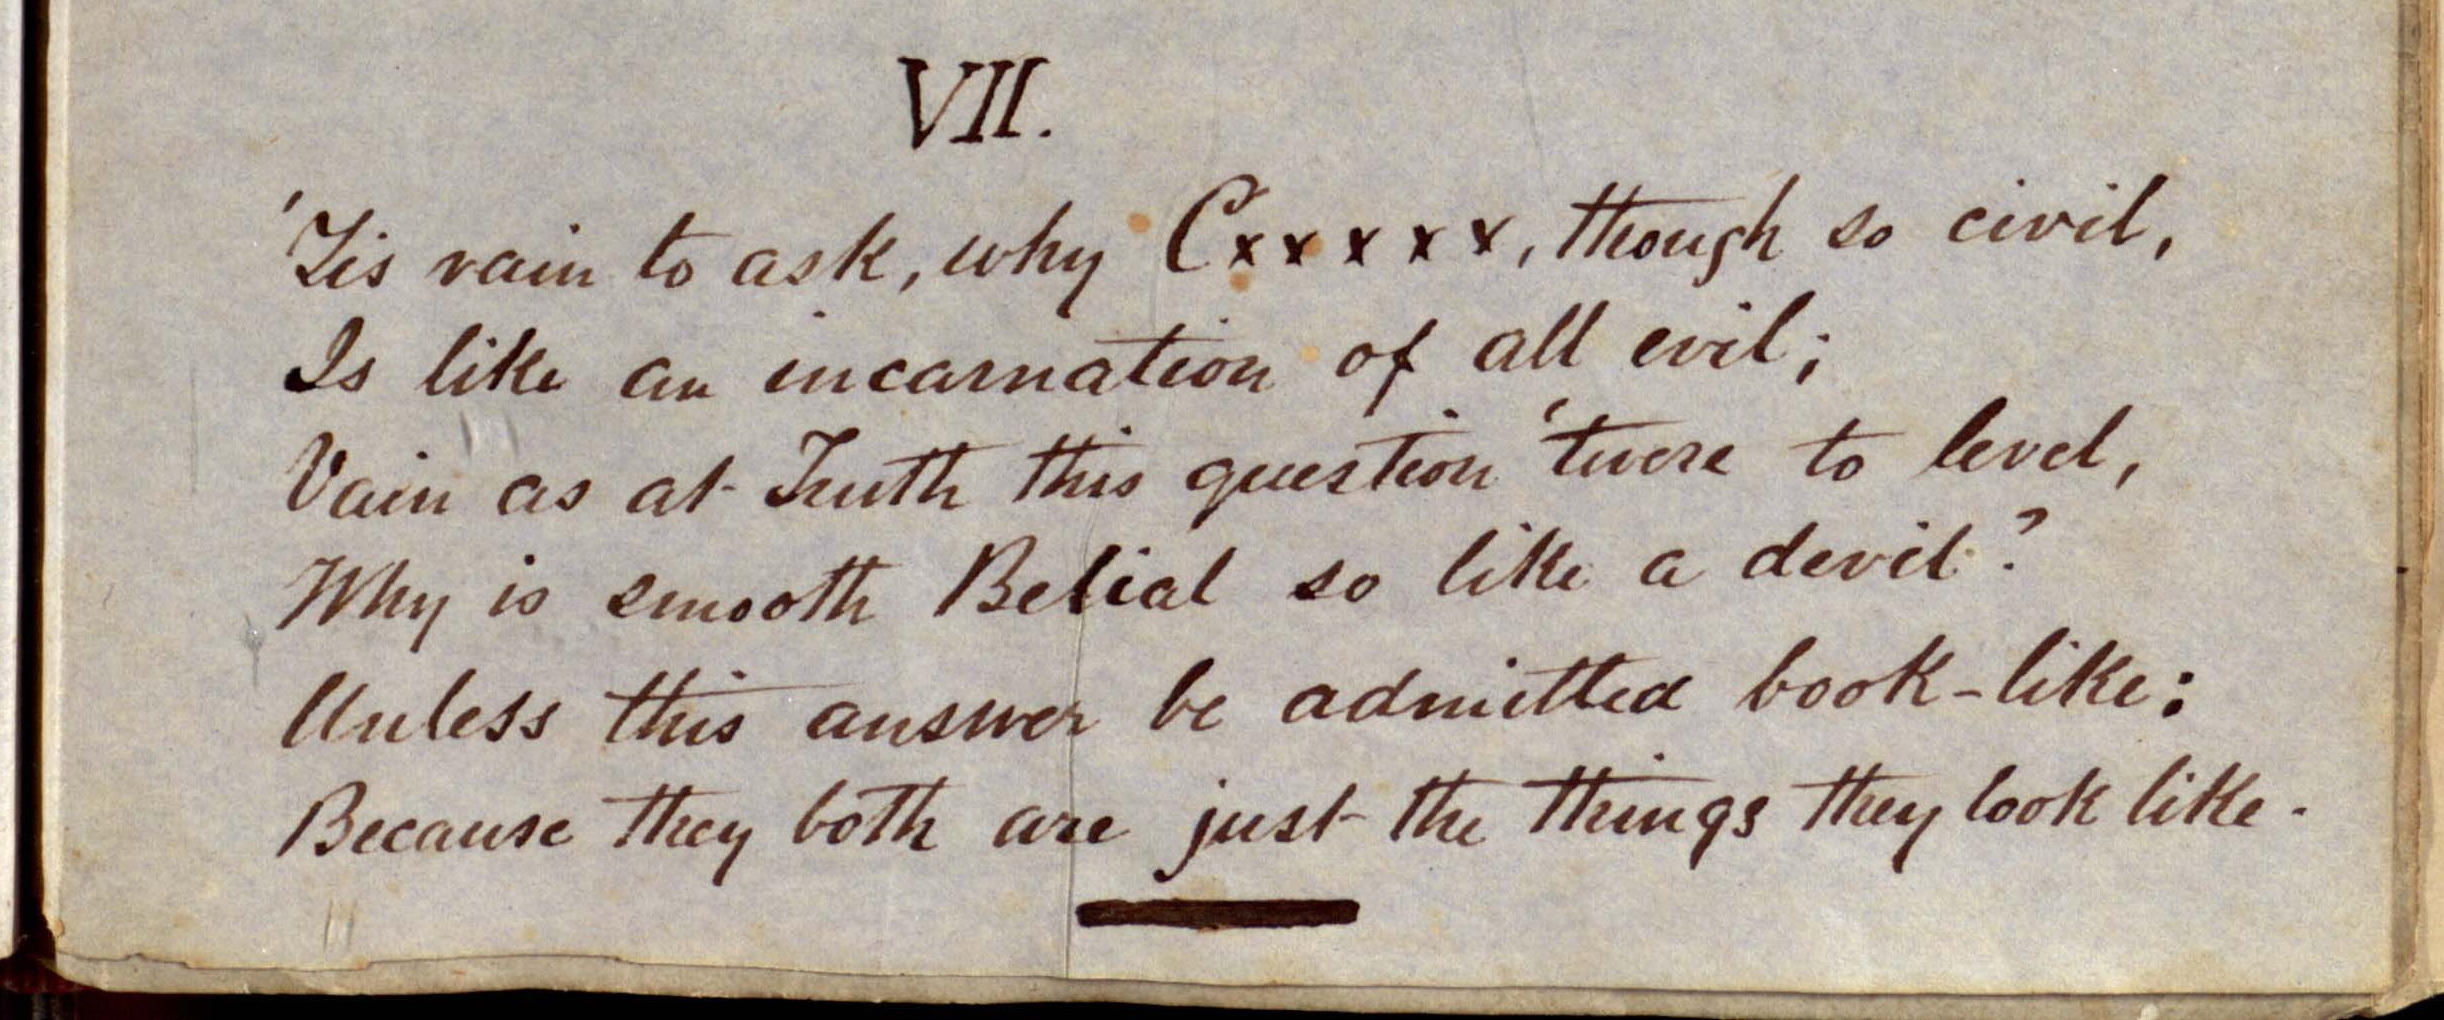 VII.
'Tis vain to ask, why Cxxxxx, though so civil,
Is like an incarnation of all evil;
Vain as at Truth this question 'twere to level,
Why is smooth Belial so like a devil?
Unless this answer be admitted book-like:
Because they both are just the things they look like.